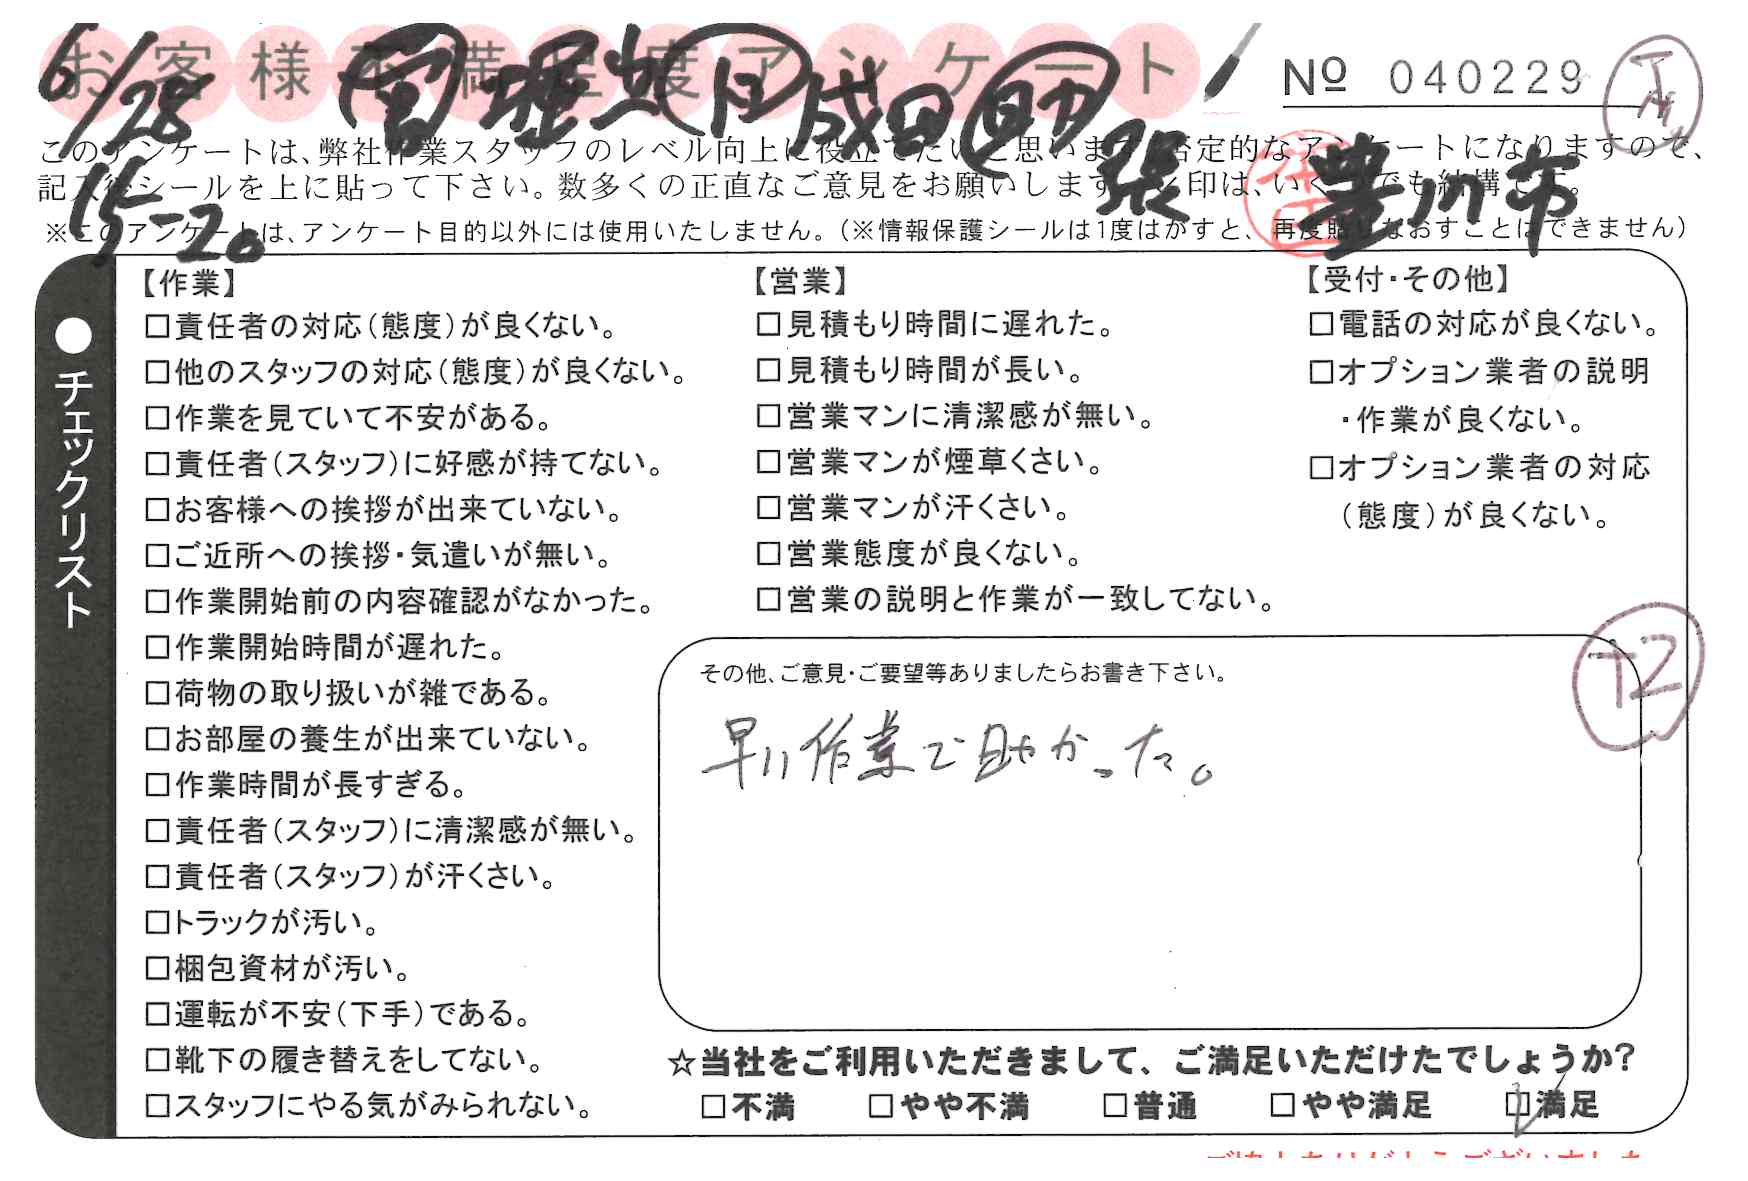 お客様不満足度アンケート
NO 040229
6/28
成田
豊川市
15-20
このアンケートは、弊社作業スタッフのレベル向上に役立てたいと思います。否定的なアンケートになりますので、
記入後シールを上に貼って下さい。数多くの正直なご意見をお願いします。✓印は、いくつでも結構です。
※このアンケートは、アンケート目的以外には使用いたしません。（※情報保護シールは1度はがすと、再度貼りなおすことはできません）
●チェックリスト
【作業】
□責任者の対応（態度）が良くない。
□他のスタッフの対応（態度）が良くない。
□作業を見ていて不安がある。
□責任者（スタッフ）に好感が持てない。
□お客様への挨拶が出来ていない。
□ご近所への挨拶・気遣いが無い。
□作業開始前の内容確認がなかった。
□作業開始時間が遅れた。
□荷物の取り扱いが雑である。
□お部屋の養生が出来ていない。
□作業時間が長すぎる。
□責任者（スタッフ）に清潔感が無い。
□責任者（スタッフ）が汗くさい。
□トラックが汚い。
□梱包資材が汚い。
□運転が不安（下手）である。
□靴下の履き替えをしてない。
□スタッフにやる気がみられない。
【営業】
□見積もり時間に遅れた。
□見積もり時間が長い。
□営業マンに清潔感が無い。
□営業マンが煙草くさい。
□営業マンが汗くさい。
□営業態度が良くない。
□営業の説明と作業が一致してない。
【受付・その他】
□電話の対応が良くない。
□オプション業者の説明
・作業が良くない。
□オプション業者の対応
（態度）が良くない。
その他、ご意見・ご要望等ありましたらお書き下さい。
12
早い作業で助かった。
☆当社をご利用いただきまして、ご満足いただけたでしょうか？
□不満 □やや不満 □普通 □やや満足 □満足
ご協力ありがとうございました